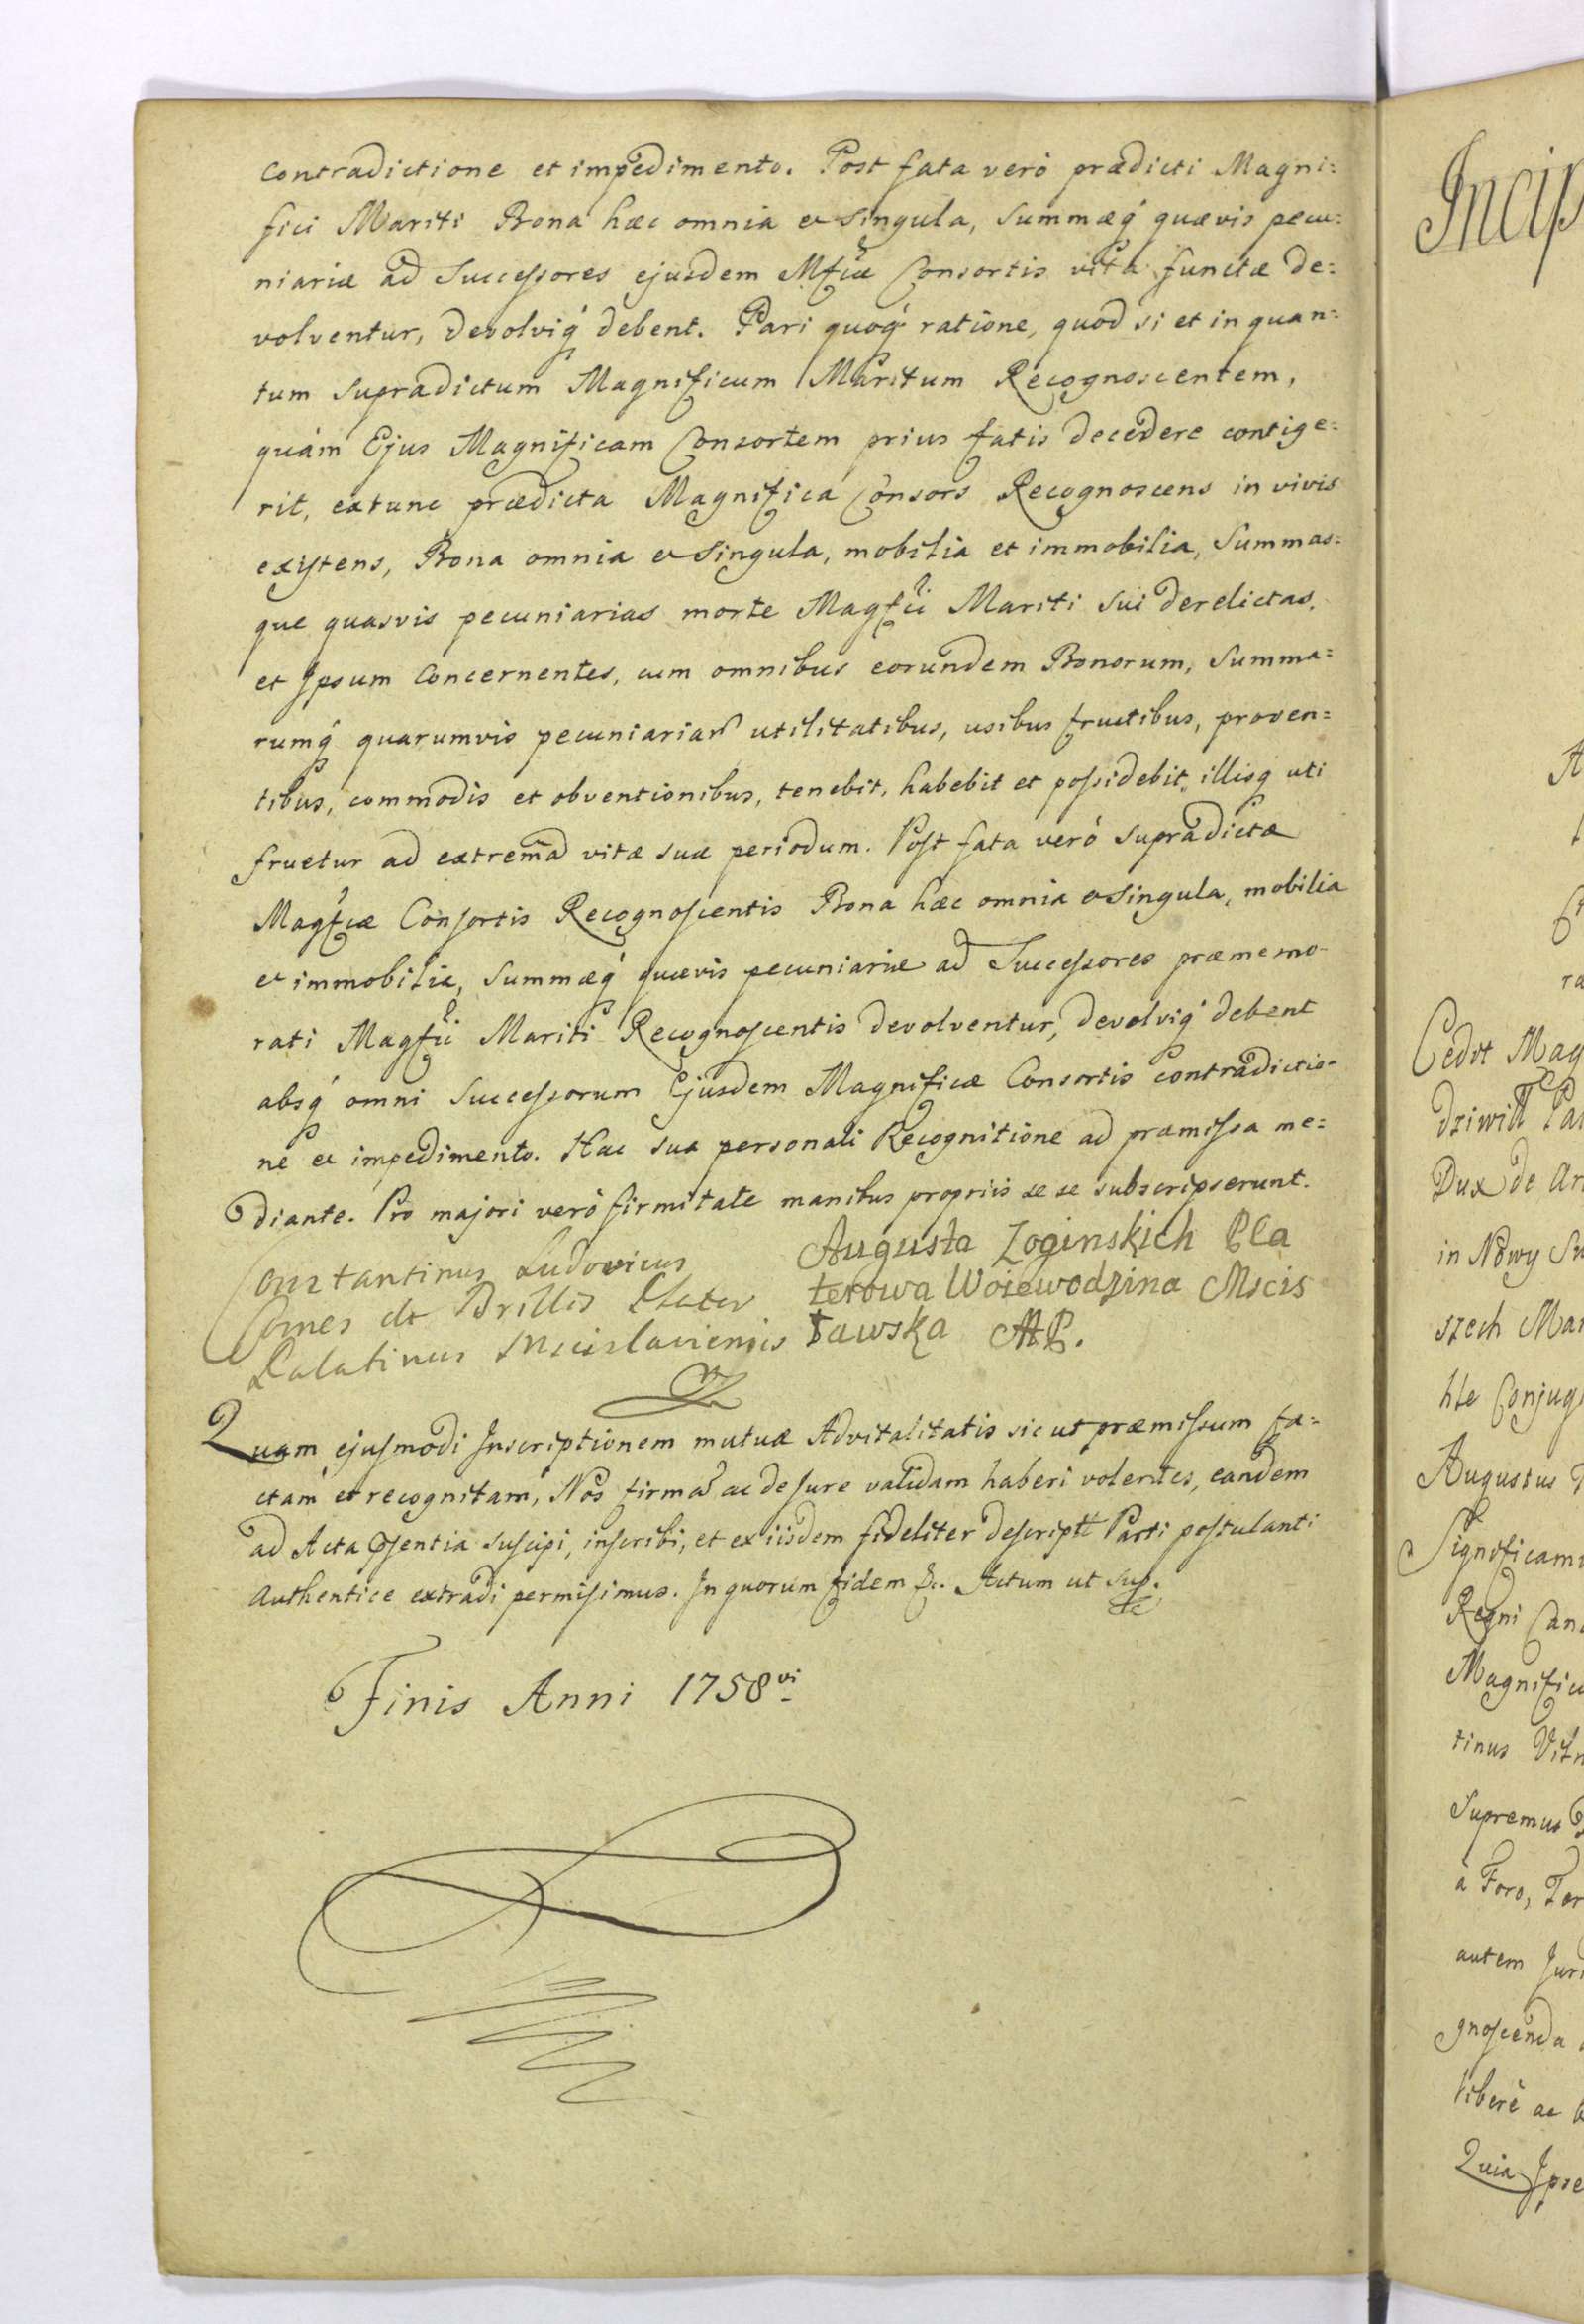 contradictione et impedimento. Post fata verò prædicti Magni=
fici Mariti Bona hæc omnia et singula, Summæq́ quævis pecu=
niariæ ad Successores ejusdem Mfcæ Consortis vita functæ de=
volventur, devolviq́ debent. Pari quoq́ ratione, quod si et in quan=
tum supradictum Magnificum Maritum Recognoscentem,
quàm Ejus Magnificam Consortem prius fatis decedere contige=
rit, extunc prædicta Magnifica Consors Recognoscens in vivis
existens, Bona omnia et singula, mobilia et immobilia, Summas=
que quasvis pecuniarias morte Magfci Mariti sui derelictas,
et Ipsum Concernentes, cum omnibus eorundem Bonorum, Summa=
rumq́ quarumvis pecuniariar utilitatibus, usibus fructibus, proven=
tibus, commodis et obventionibus, tenebit, habebit et possidebit, illisq uti
fruetur ad extremã vitæ suæ periodum. Post fata verò supradictæ
Magfcæ Consortis Recognoscentis Bona hæc omnia et singula, mobilia
et immobilia, Summæq́ quævis pecuniariæ ad Successores præmemo-
rati Magfci Mariti Recognoscentis devolventur, devolviq́ debent
absq́ omni Successorum Ejusdem Magnificæ Consortis contradictio-
ne et impedimento. Hac sua personali Recognitione ad præmissa me=
diante. Pro majori verò firmitate manibus propriis se se subscripserunt.
Constantinus Ludovicus
Comes de Brillis Plater
Palatinus Mscislaviensis
Augusta Zoginskich Pla
terowa Woiewodzina Mscis
ławska MP.
Quam ejusmodi Inscriptionem mutuæ Advitalitatis sic ut præmissum fa=
ctam et recognitam, Nos firmã ac de Jure validam haberi volentes, eandem
ad Acta p̃sentia suscipi, inscribi, et ex iisdem fideliter descript Parti postulanti
Authentice extradi permisimus. In quorum fidem &c. Actum ut sup.
Finis Anni 1758vi
Incip
Cedit Mag
dziwiłł Pal
Dux de
in Nowy
szech Mar
Conjug
Augustus
Significam
Regni Can
Magnific
tinus Viln
Supremus
à Foro, Ter
autem Juri
gnoscenda
liberè ac
Quia Ipse